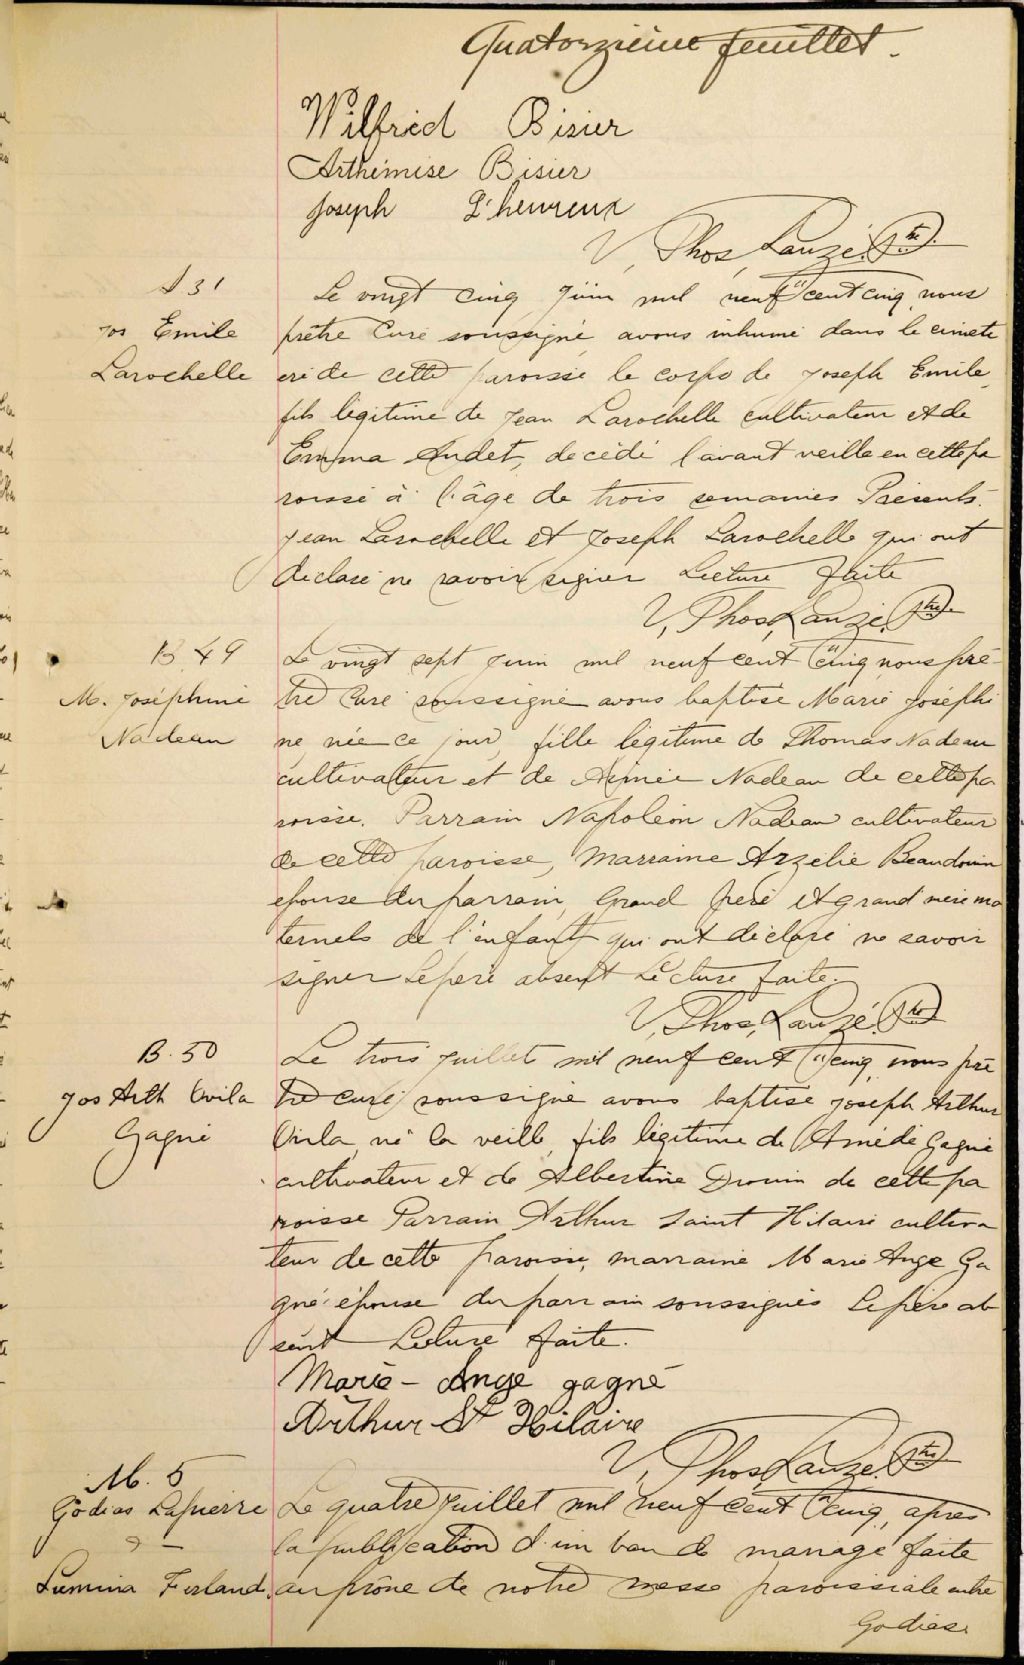 Quatorzième feuillet.
Wilfrid Bisier
Arthémise Bisier
Joseph L'heureux
V, Thos, Lauzé, Ptre.
S 31
Jos Emile
Larochelle
Le vingt cinq Juin mil neuf cent cinq, nous
prêtre Curé soussigné, avons inhumé dans le cimeti
ère de cette paroisse le corps de Joseph Emile,
fils légitime de Jean Larochelle cultivateur et de
Emma Audet, décédé l'avant veille en cette pa
roisse à l'âge de trois semaines Présents
Jean Larochelle et Joseph Larochelle qui ont
déclaré ne savoir signer Lecture faite
V, Thos, Lauzé, Ptre.
B 49
M. Joséphine
Nadeau
Le vingt sept Juin mil neuf cent cinq, nous prê-
tre Curé soussigné avons baptisé Marie Joséphi
ne, née ce jour, fille légitime de Thomas Nadeau
cultivateur et de Aimée Nadeau de cette pa
roisse. Parrain Napoléon Nadeau cultivateur
de cette paroisse, marraine Arzélie Beaudouin
épouse du parrain, Grand père et grand'mère ma
ternels de l'enfant qui ont déclaré ne savoir
signer Le père absent Lecture faite.
V, Thos, Lauzé, Ptre
B. 50
Jos Arth Ovila
Gagné
Le trois Juillet mil neuf cent cinq, nous prê
tre curé soussigné avons baptisé Joseph Arthur
Ovila, né la veille, fils légitime de Amédé Gagné
cultivateur et de Albertine Drouin de cette pa
roisse Parrain Arthur Saint Hilaire cultiva
teur de cette paroisse, marraine Marie Ange Ga
gné épouse du parrain soussignés Le père ab
sent Lecture faite.
Marie-Ange gagné
Arthur St Hilaire
V, Thos Lauzé, Ptre
M. 5
Godias Lapierre
&
Lumina Ferland
Le quatre Juillet mil neuf cent cinq, après
la publication d'un ban de mariage faite
au prône de notre messe paroissiale entre
Godias